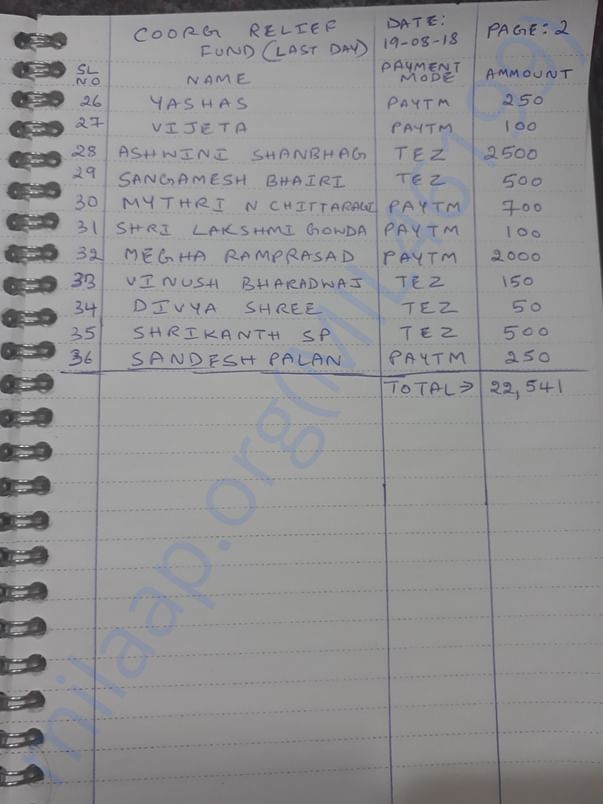 COORG RELIEF FUND (LAST DAY) DATE: 19-08-18 PAGE: 2
SL NO NAME PAYMENT MODE AMMOUNT
26 YASHAS PAYTM 250
27 VIJETA PAYTM 100
28 ASHWINI SHANBHAG TEZ 2500
29 SANGAMESH BHAIRI TEZ 500
30 MYTHRI N PAYTM 700
31 SHRI LAKSHMI GOWDA PAYTM 100
32 MEGHA RAMPRASAD PAYTM 2000
33 VINUSH BHARADWAJ TEZ 150
34 DIVYA SHREE TEZ 50
35 SHRIKANTH SP TEZ 500
36 SANDESH PALAN PAYTM 250
TOTAL ⇒ 22,541